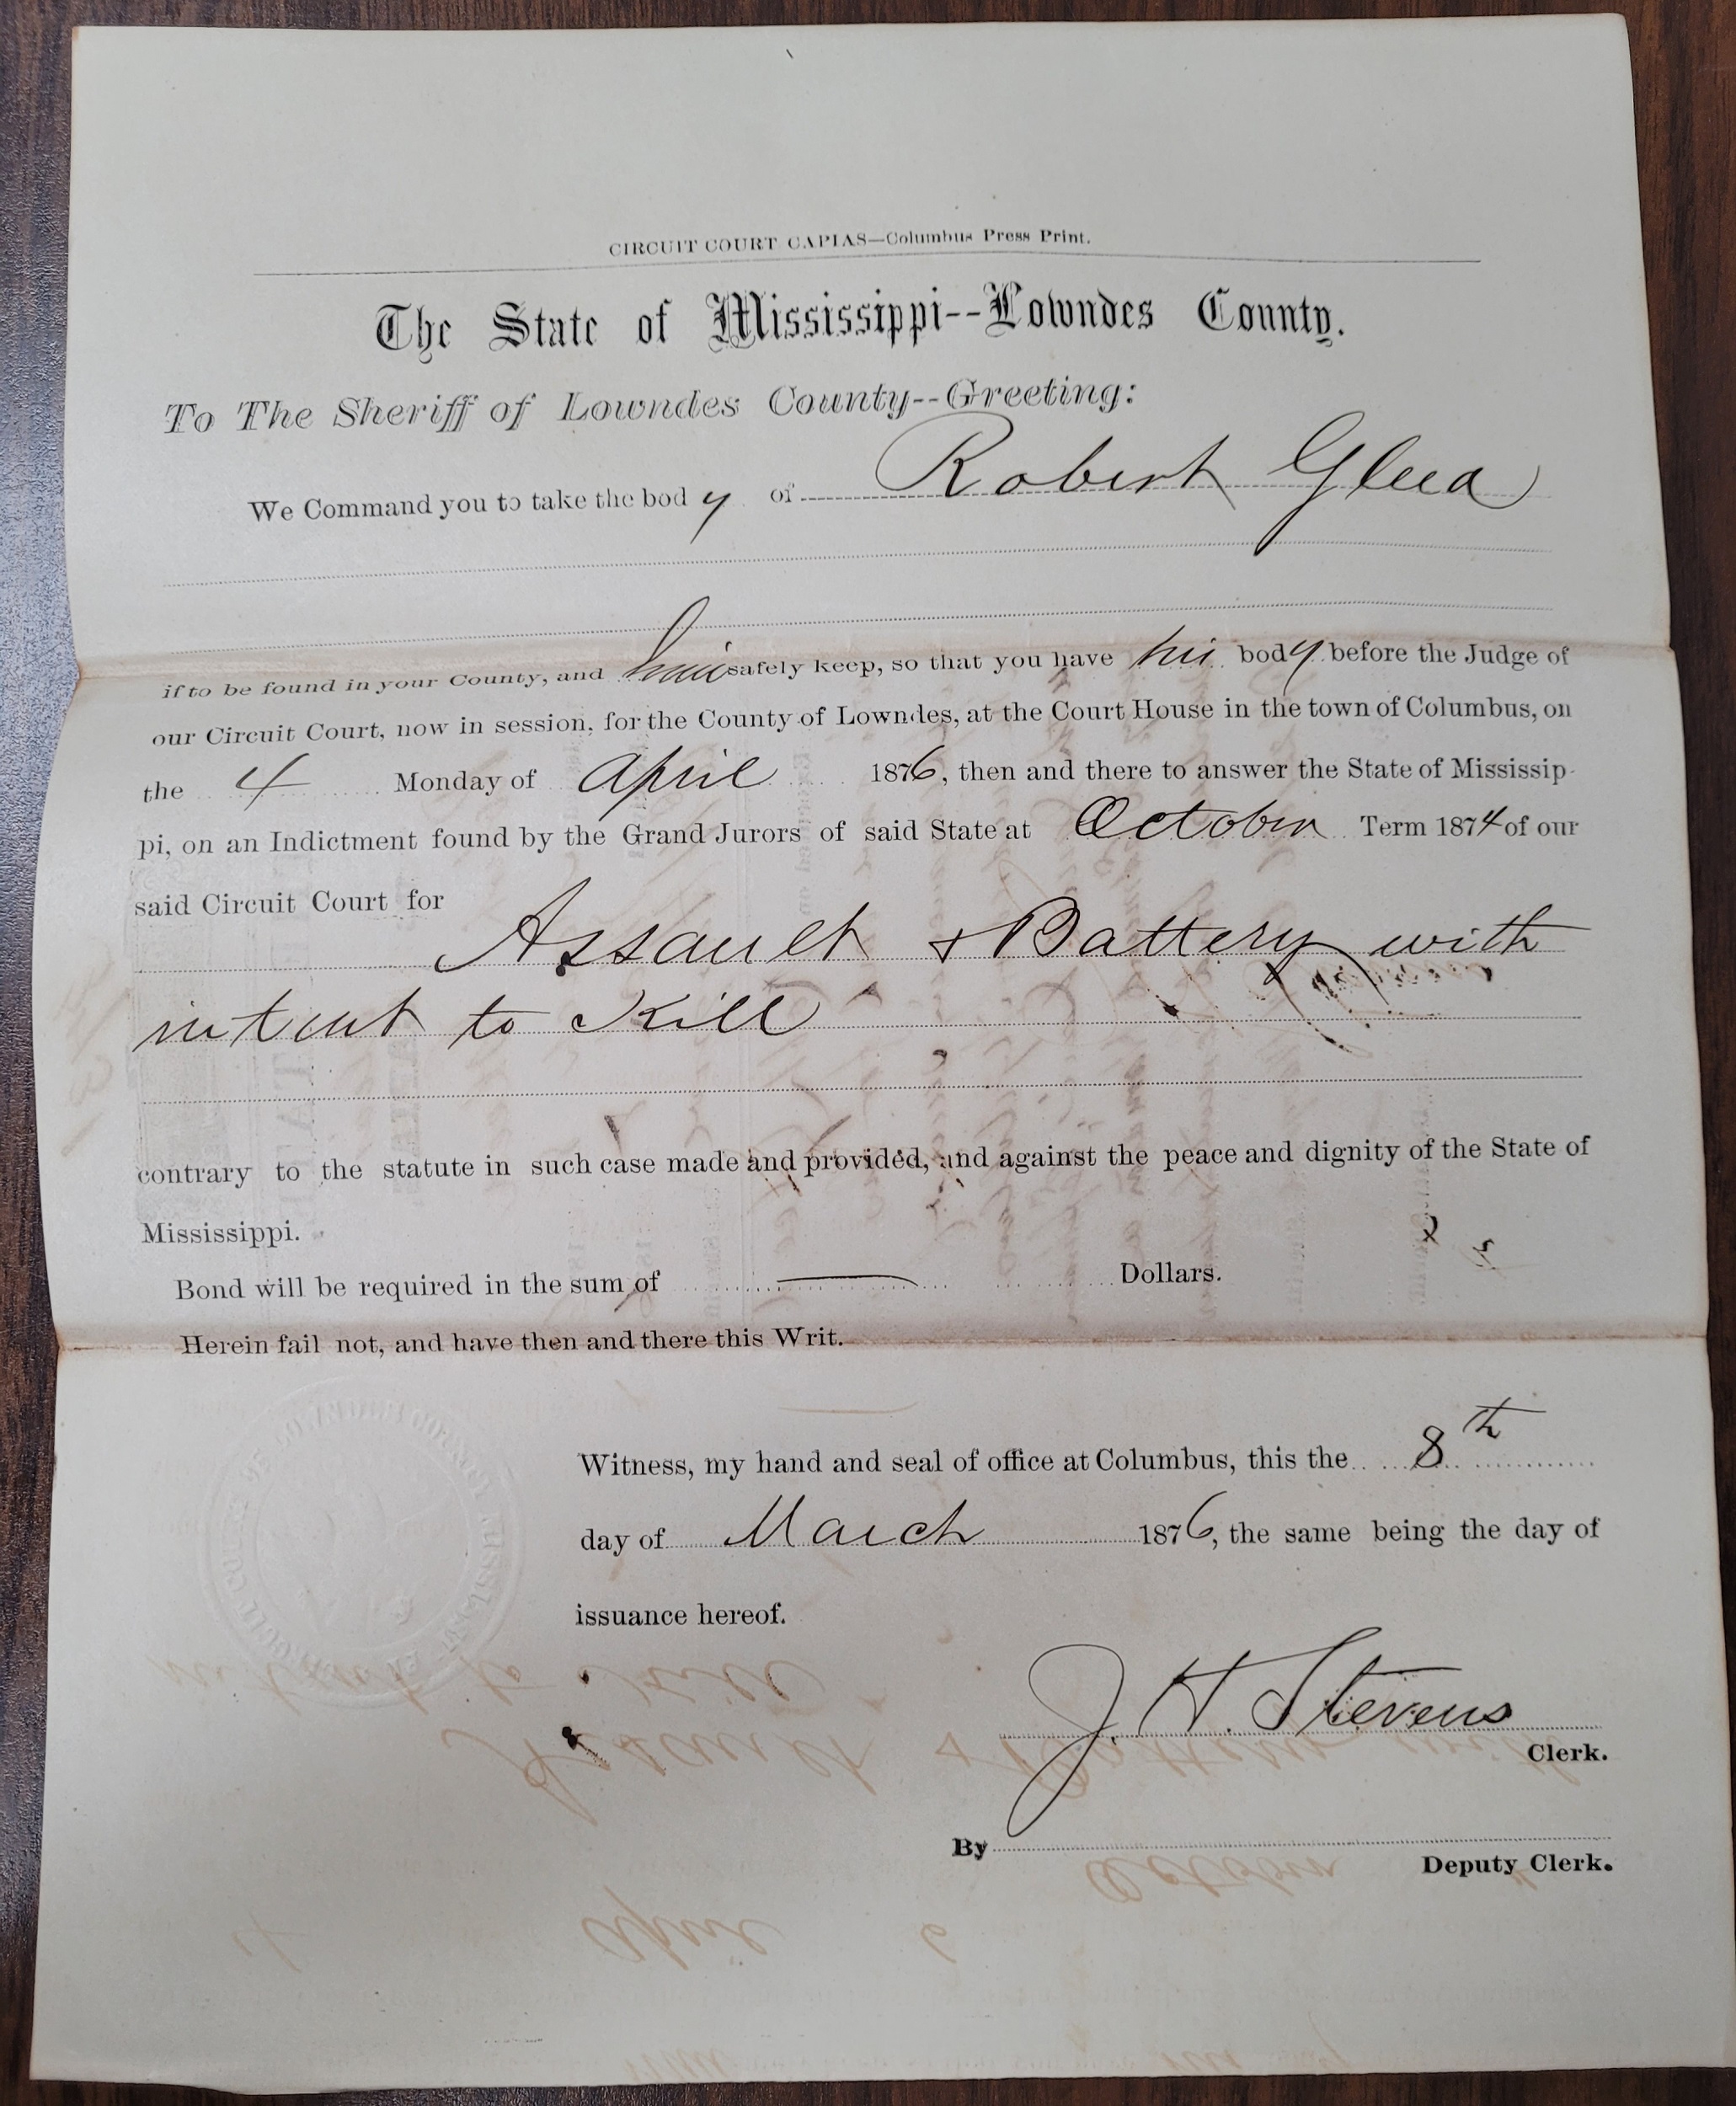 CIRCUIT COURT CAPIAS—Columbus Press Print.
The State of Mississippi--Lowndes County.
To The Sheriff of Lowndes County--Greeting:
We Command you to take the body of Robert Gleed
if to be found in your County, and him safely keep, so that you have his body before the Judge of
our Circuit Court, now in session, for the County of Lowndes, at the Court House in the town of Columbus, on
the 4 Monday of April 1876, then and there to answer the State of Mississip-
pi, on an Indictment found by the Grand Jurors of said State at October Term 1874 of our
said Circuit Court for
Assault & Battery with
intent to Kill
contrary to the statute in such case made and provided, and against the peace and dignity of the State of
Mississippi.
Bond will be required in the sum of — Dollars.
Herein fail not, and have then and there this Writ.
Witness, my hand and seal of office at Columbus, this the 8th
day of March 1876, the same being the day of
issuance hereof.
J. H. Stevens
Clerk.
By
Deputy Clerk.